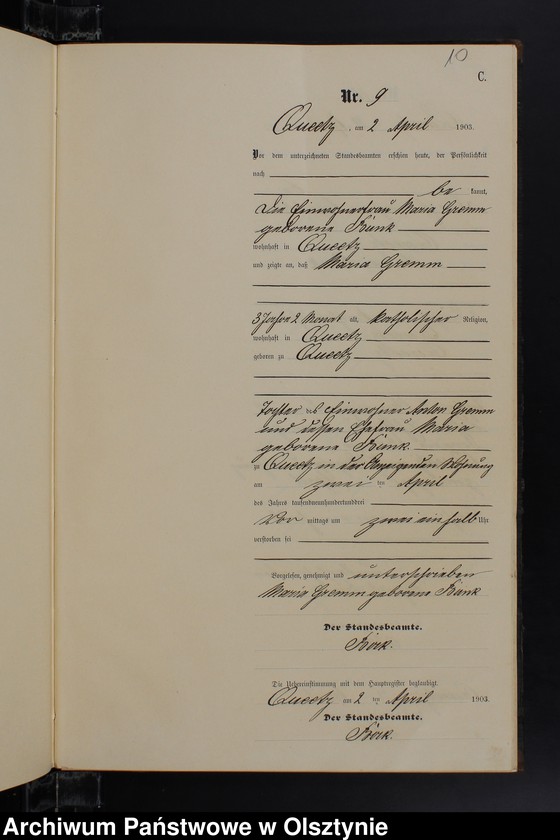 10
C.
Nr. 9
Queetz, am 2 April 1903.
Vor dem unterzeichneten Standesbeamten erschien heute, der Persönlichkeit
nach
be kannt,
die Einwohnerfrau Maria Gremm
geborene Kunk
wohnhaft in Queetz
und zeigte an, daß Maria Gremm
3 Jahre 2 Monat alt, katholischer Religion,
wohnhaft in Queetz
geboren zu Queetz
Tochter des Einwohner Anton Gremm
und dessen Ehefrau Maria
geborene Kunk
zu Queetz in der Anzeigenden Wohnung
am zwei ten April
des Jahres tausendneunhundertunddrei
Vor mittags um zwei ein halb Uhr
verstorben sei
Vorgelesen, genehmigt und unterschrieben
Maria Gremm geborene Kunk
Der Standesbeamte.
Die Uebereinstimmung mit dem Hauptregister beglaubigt.
Queetz am 2 ten April 1903.
Der Standesbeamte.
Archiwum Państwowe w Olsztynie